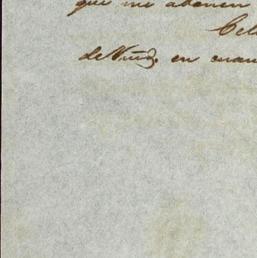 que me abonen
Cel
de Vind. en cuan